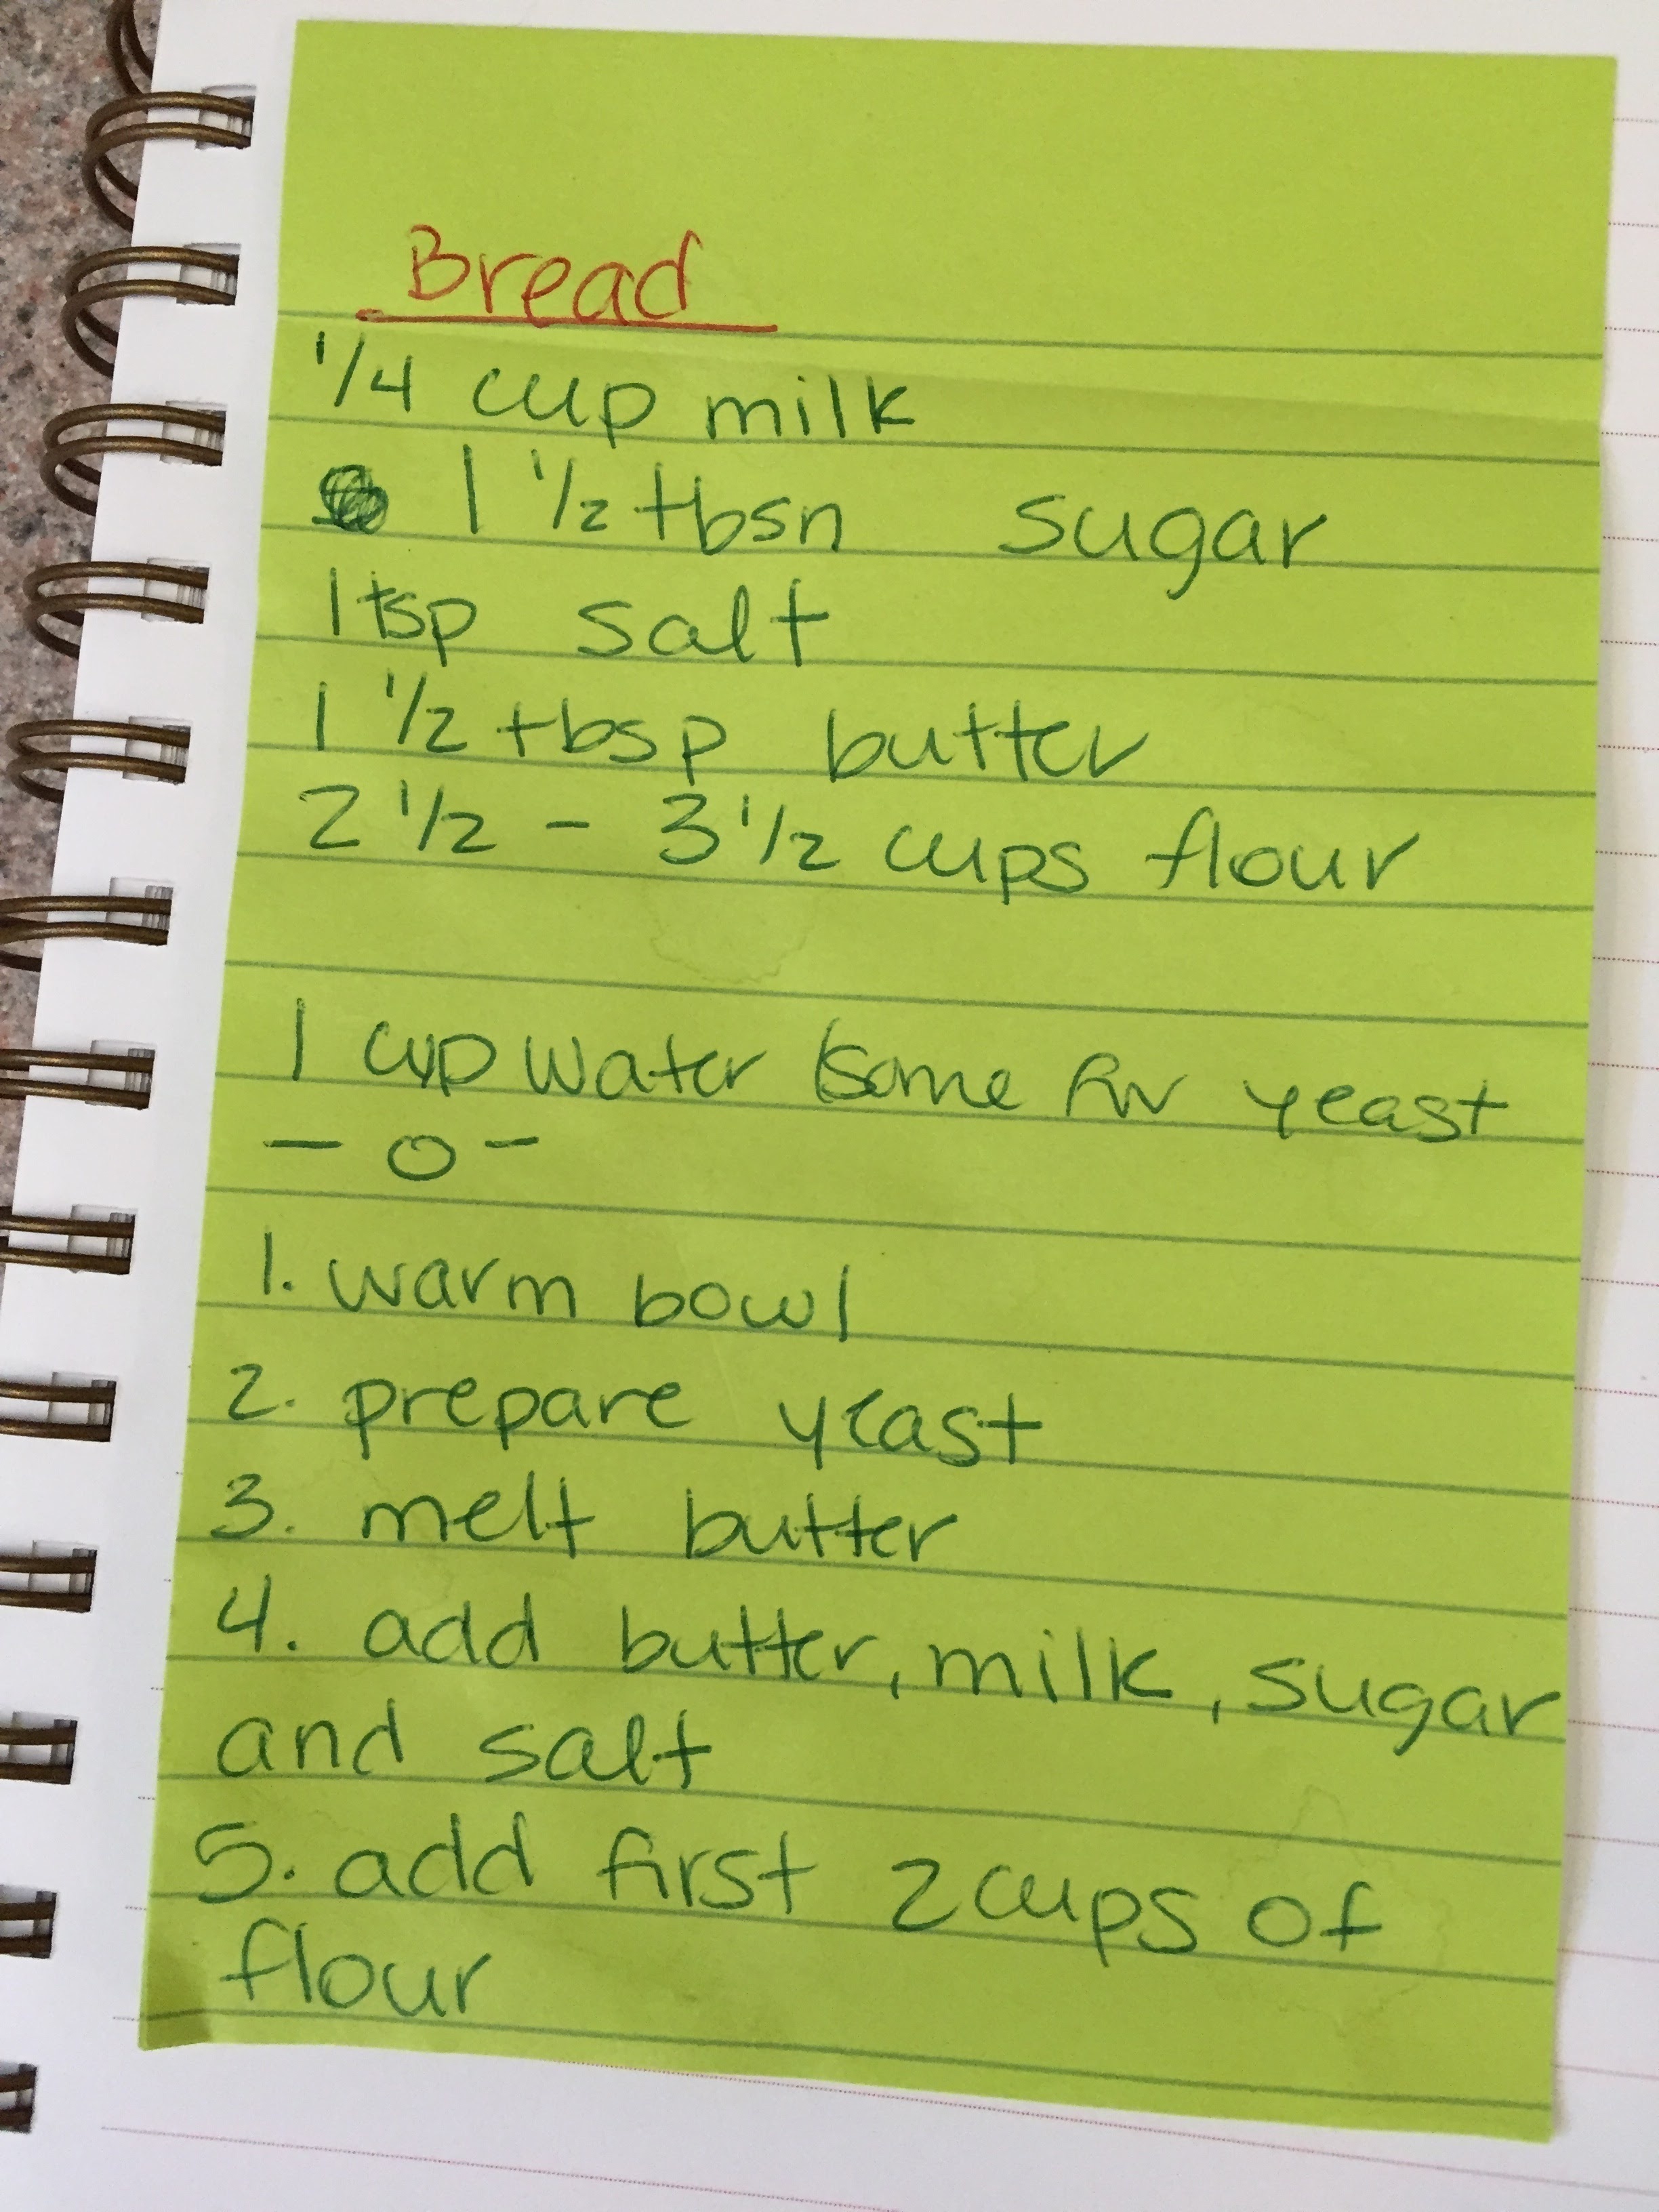 Bread
1/4 cup milk
1 1/2 tbsn sugar
1 tsp salt
1 1/2 tbsp butter
2 1/2 - 3 1/2 cups flour
1 cup water (some for yeast
- o -
1. warm bowl
2. prepare yeast
3. melt butter
4. add butter, milk, sugar
and salt
5. add first 2 cups of
flour